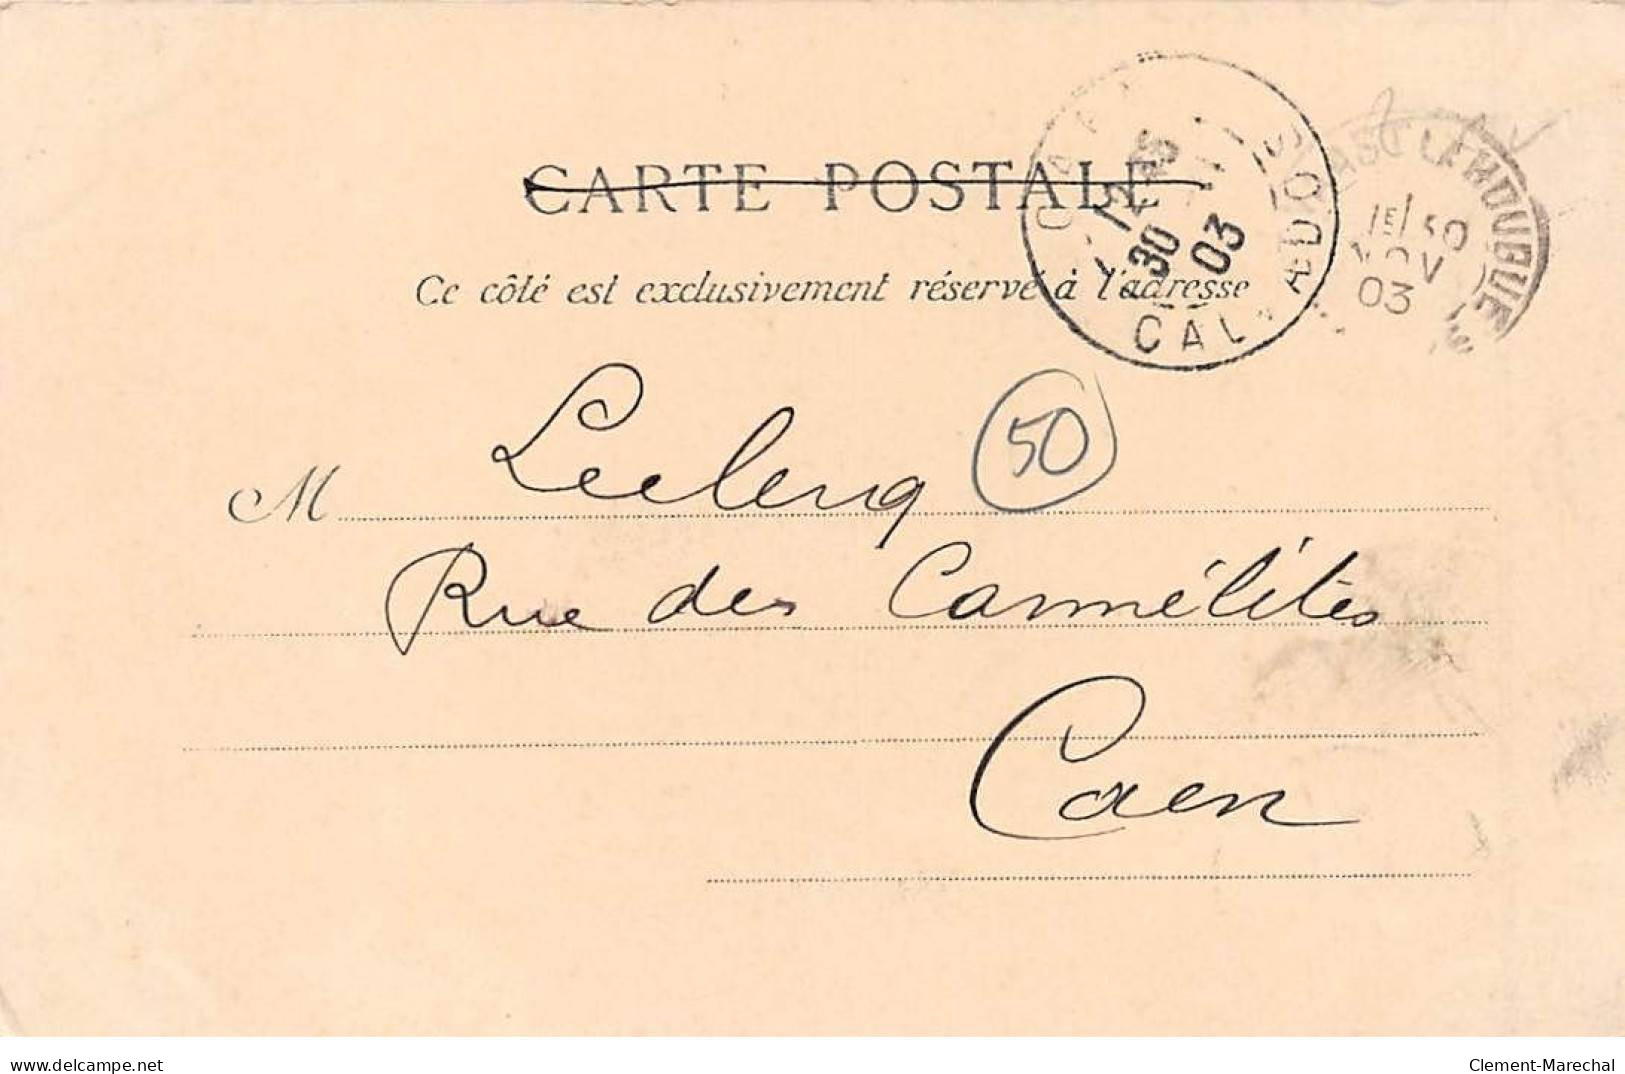 CARTE POSTALE
Ce côté est exclusivement réservé à l'adresse
CALVADOS
12
30 11
03
LA HOUGUE
30
NOV
03
50
M Leclerq
Rue des Carmélites
Caen
www.delcampe.net
Clement-Marechal